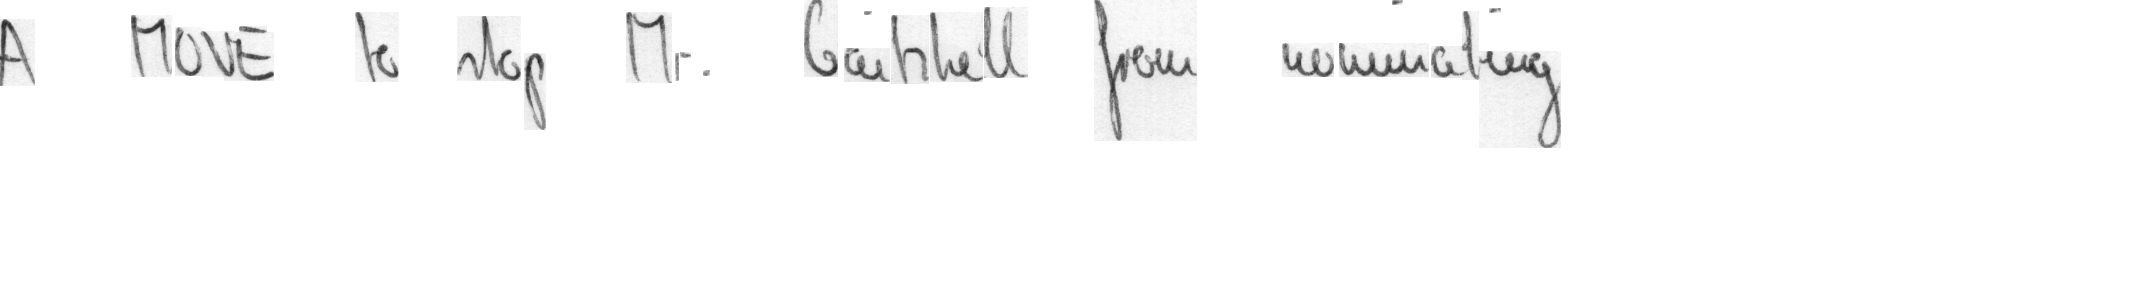 A MOVE to stop Mr. Gaitskell from nominating